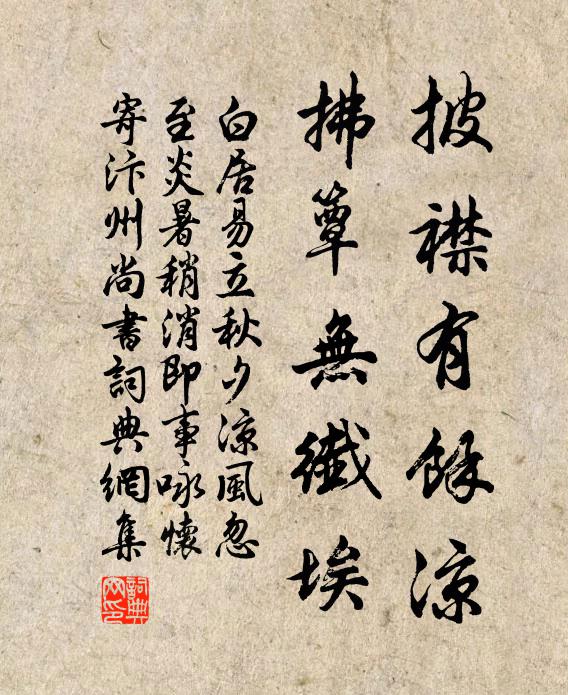 披襟有餘涼
拂簟無纖埃
白居易立秋夕涼風忽
至炎暑稍消即事咏懷
寄汴州尚書詞典網集
詞典
网印